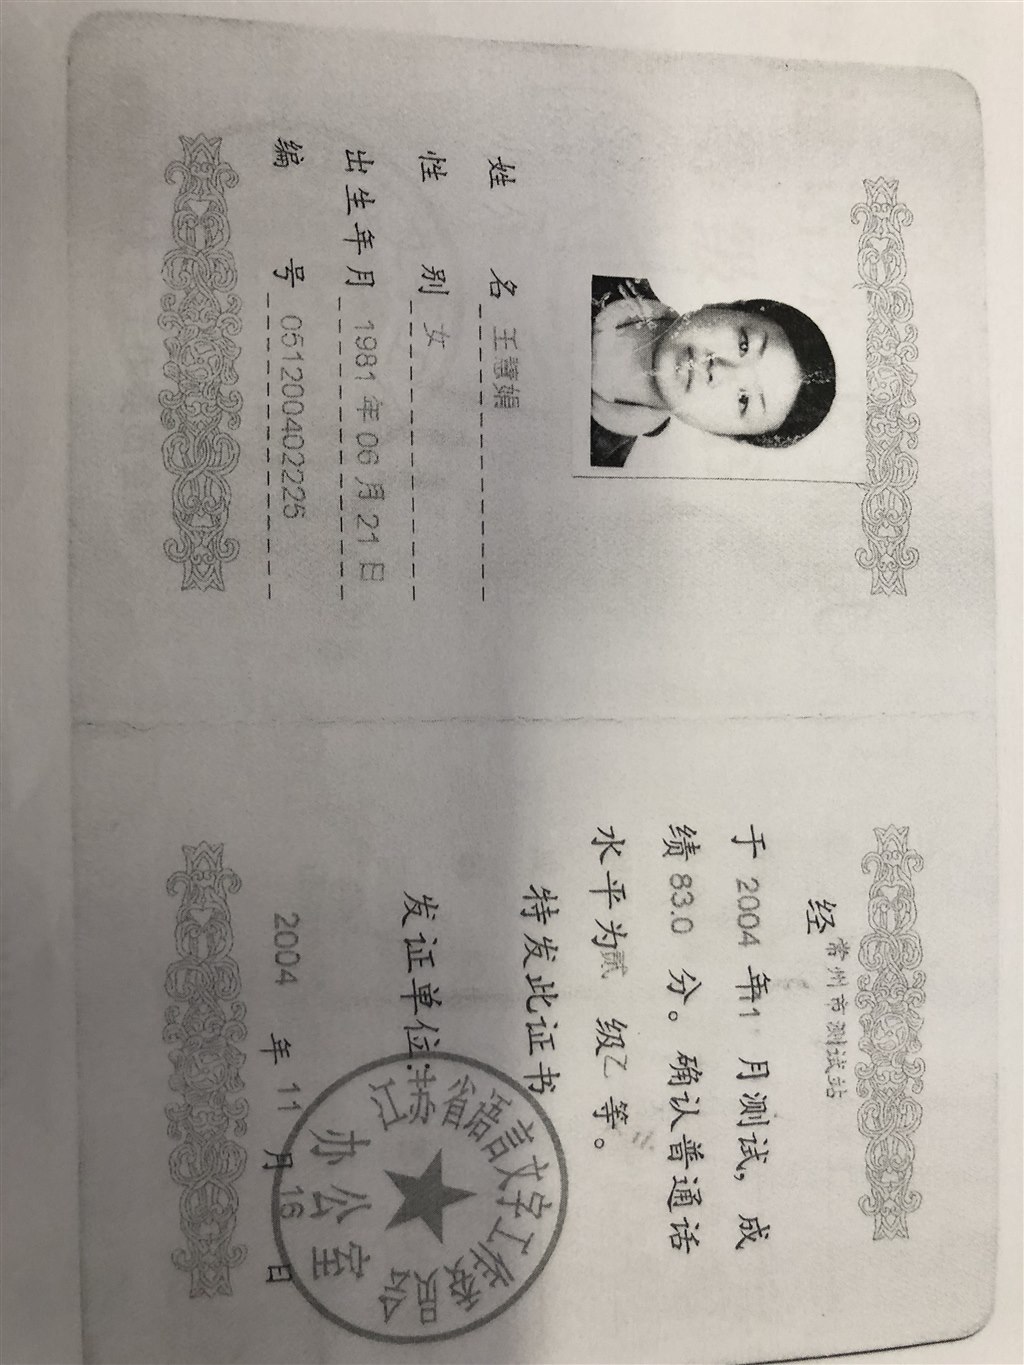 姓 名 王慧娟
性 别 女
出生年月 1981年06月21日
编 号 051200402225
经常州市测试站
于2004年11月测试,成
绩83.0分。确认普通话
水平为贰级乙等。
特发此证书
发证单位:
江苏省语言文字工作委员会
办公室
2004年11月16日